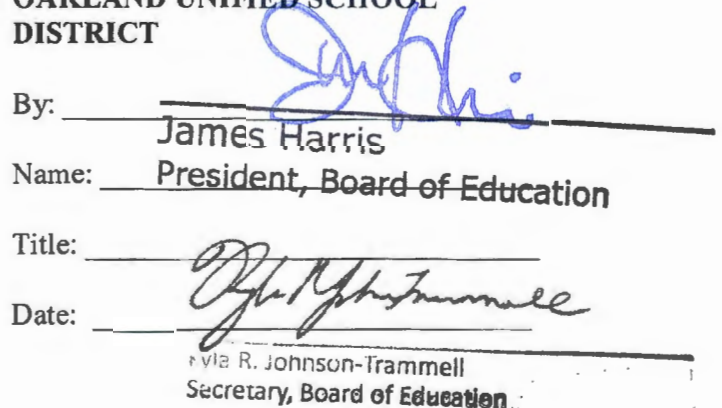 OAKLAND UNIFIED SCHOOL
DISTRICT
By:
James Harris
Name: President, Board of Education
Title:
Date:
Kyla R. Johnson-Trammell
Secretary, Board of Education